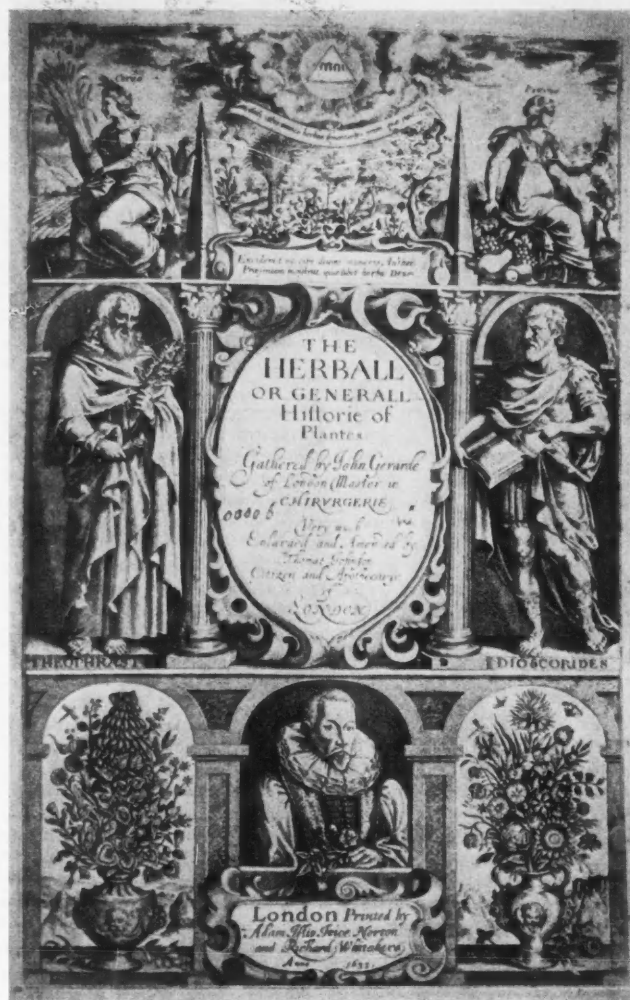 Ceres
Pomona
Excideret ne tibi divini muneris, Author
Præsentem monstrat quælibet herba Deum
THE
HERBALL
OR GENERALL
Historie of
Plantes
Gathered by John Gerarde
of London Master in
CHIRVRGERIE
Very much
Enlarged and Amended by
Thomas Johnson
Citizen and Apothecarye
of
LONDON
THEOPHRAST
DIOSCORIDES
London Printed by
Adam Islip Joice Norton
and Richard Whitakers
Anno 1633.